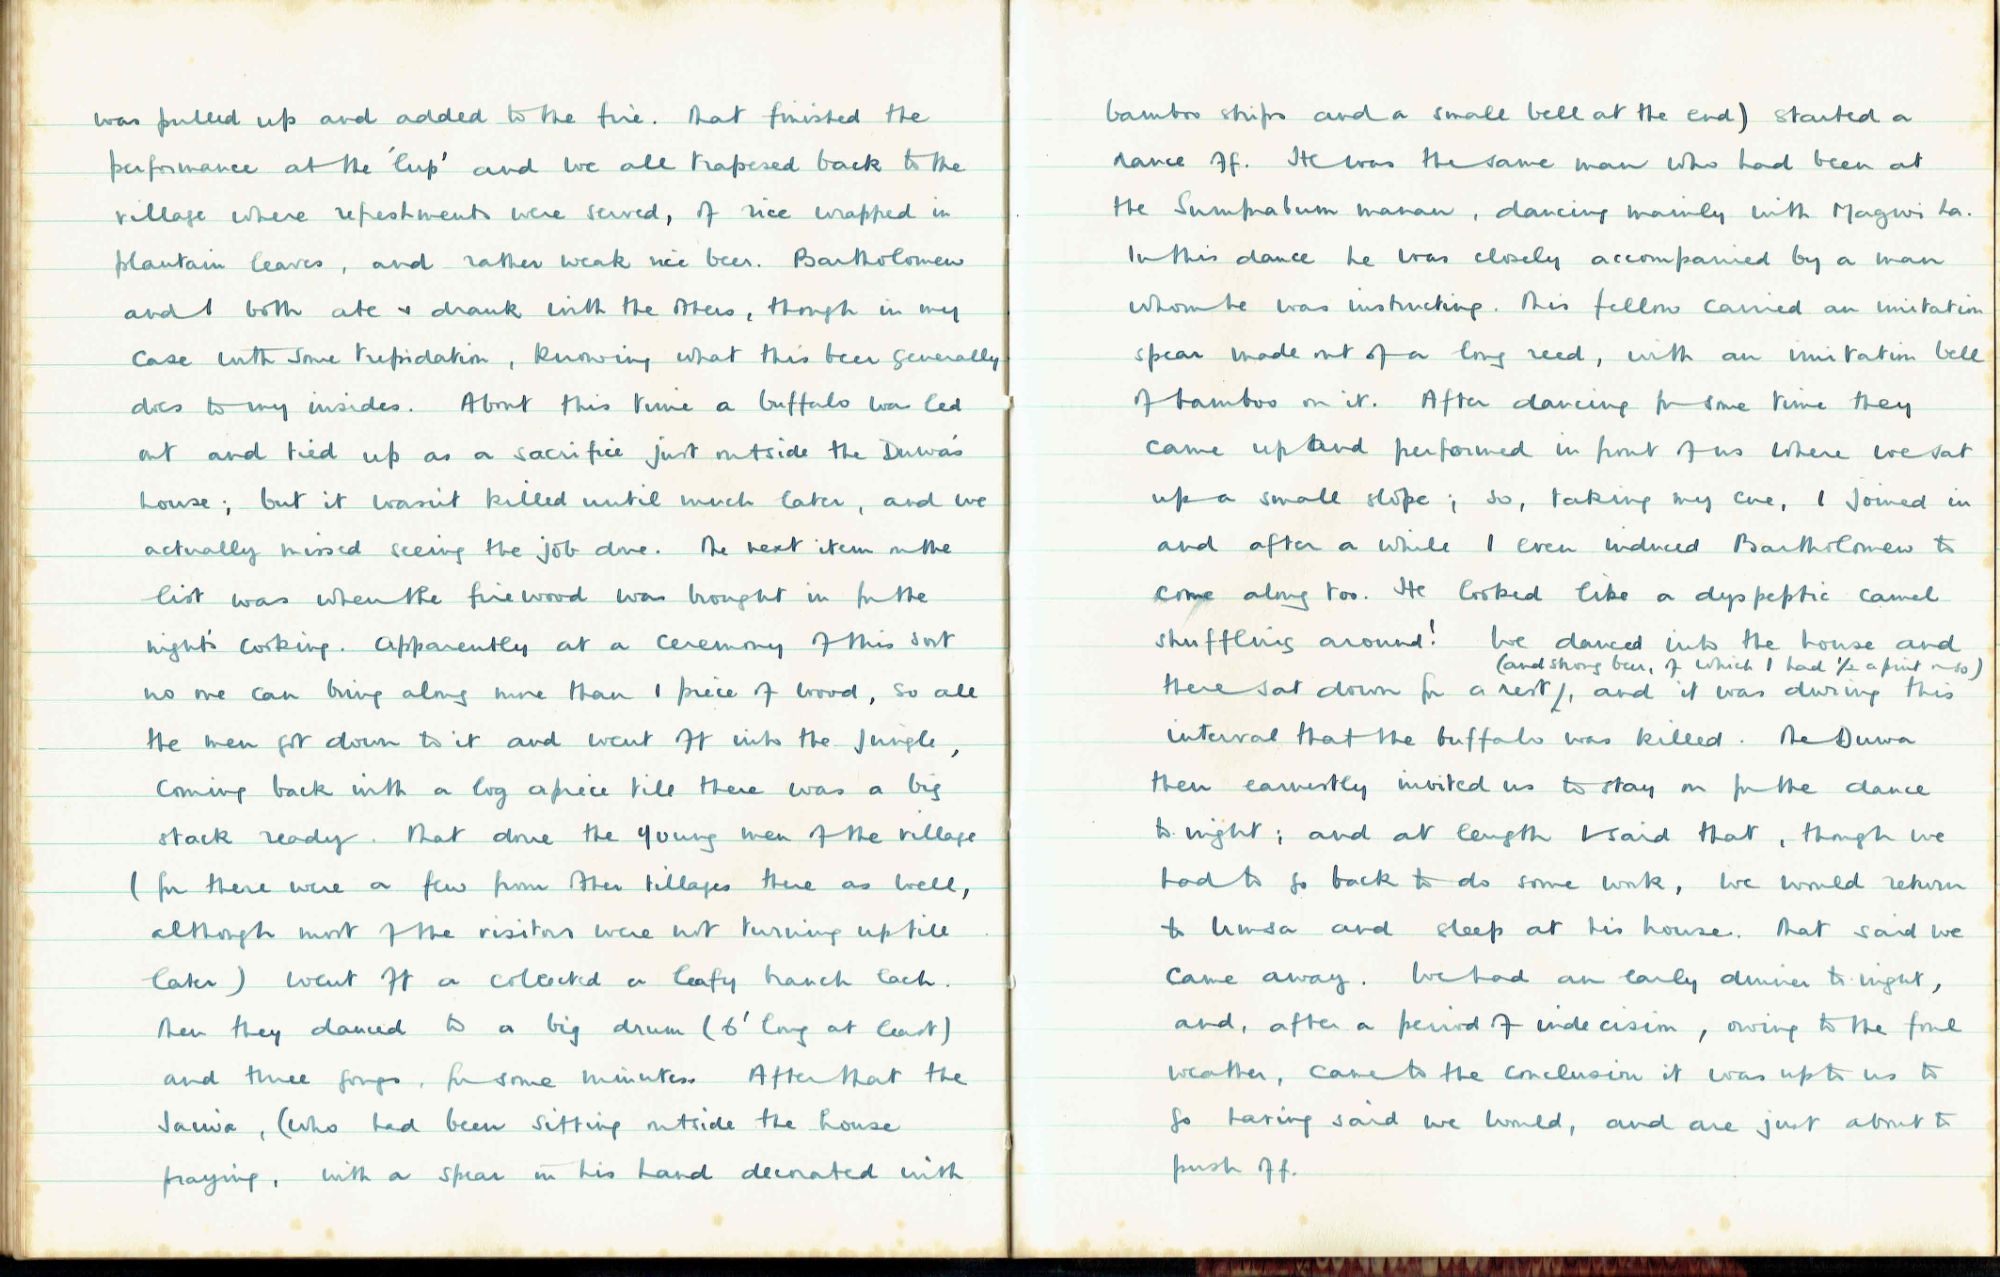 was pulled up and added to the fire. That finished the
performance at the 'lup' and we all trapesed back to the
village where refreshments were served, of rice wrapped in
plantain leaves, and rather weak rice beer. Bartholomew
and I both ate & drank with the others, though in my
case with some trepidation, knowing what this beer generally
does to my insides. About this time a buffalo was led
out and tied up as a sacrifice just outside the Duwa's
house; but it wasn't killed until much later, and we
actually missed seeing the job done. The next item on the
list was when the firewood was brought in for the
night's cooking. Apparently at a ceremony of this sort
no one can bring along more than 1 piece of wood, so all
the men got down to it and went off into the jungle,
coming back with a log apiece till there was a big
stack ready. That done the young men of the village
(for there were a few from other villages there as well,
although most of the visitors were not turning up till
later) went off a collected a leafy branch each.
Then they danced to a big drum (6' long at least)
and three gongs, for some minutes. After that the
Jaiwa, (who had been sitting outside the house
praying, with a spear in his hand decorated with
bamboo strips and a small bell at the end) started a
dance off. He was the same man who had been at
the Sumprabum manau, dancing mainly with Magwi La.
In this dance he was closely accompanied by a man
whom he was instructing. This fellow carried an imitation
spear made out of a long reed, with an imitation bell
of bamboo on it. After dancing for some time they
came up and performed in front of us where we sat
up a small slope; so, taking my cue, I joined in
and after a while I even induced Bartholomew to
come along too. He looked like a dyspeptic camel
shuffling around! We danced into the house and
(and strong beer, of which I had ½ a pint or so)
there sat down for a rest, and it was during this
interval that the buffalo was killed. The Duwa
then earnestly invited us to stay on for the dance
to-night; and at length I said that, though we
had to go back to do some work, we would return
to Umsa and sleep at his house. That said we
came away. We had an early dinner to-night,
and, after a period of indecision, owing to the foul
weather, came to the conclusion it was up to us to
go having said we would, and are just about to
push off.